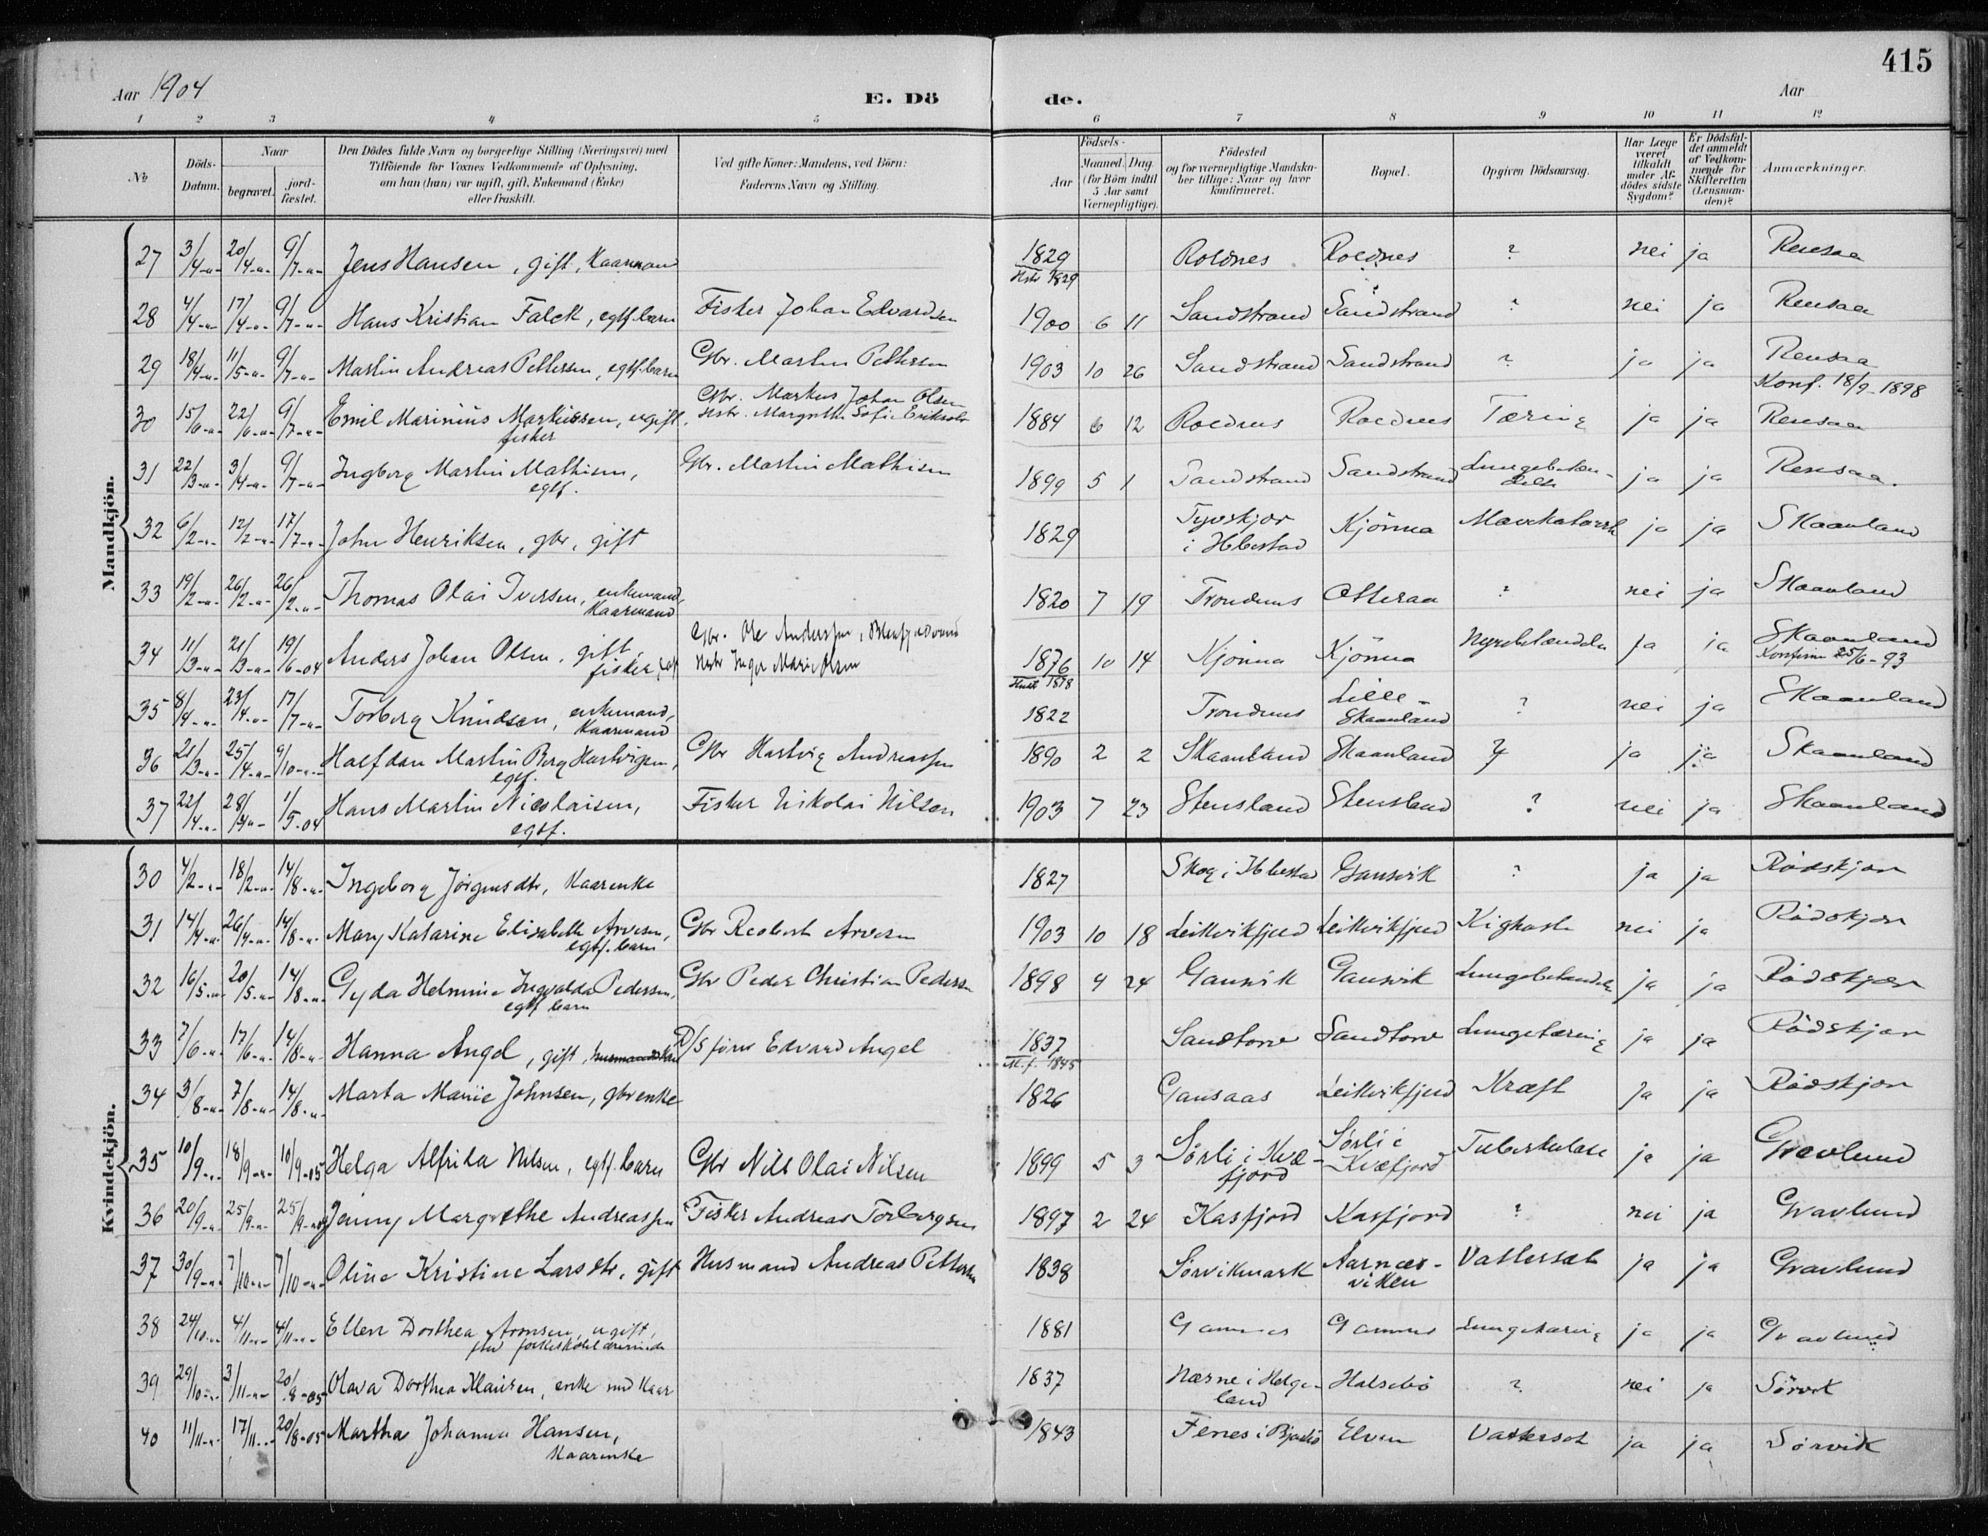 415
Aar 1904
E. Dö
de.
Aar
1 2 3 4 5 6 7 8 9 10 11 12
No
Döds-
Datum.
Naar
begravet.
jord-
fæstet.
Den Dödes fulde Navn og borgerlige Stilling (Næringsvei) med
Tilföiende for Voxnes Vedkommende af Oplysning,
om han (hun) var ugift, gift, Enkemand (Enke)
eller fraskilt.
Ved gifte Koner: Mandens, ved Börn:
Faderens Navn og Stilling.
Födsels-
Aar
Maaned.
Dag.
(for Börn indtil
5 Aar samt
Værnepligtige).
Födested
og for værnepligtige Mandska-
ber tillige: Naar og hvor
konfirmeret.
Bopæl.
Opgiven Dödsaarsag.
Har Læge
været
tilkaldt
under Af-
dödes sidste
Sygdom?
Er Dödsfal-
det anmeldt
af Vedkom-
mende for
Skifteretten
(Lensman-
den)?
Anmærkninger.
Mandkjön.
27 3/4-"- 20/4-"- 9/7-"- Jens Hansen, gift, Kaarmand 1829 Roldnes Roldnes ? nei ja Rensaa
Hstr 1829
28 4/4-"- 17/4-"- 9/7-"- Hans Kristian Falck, egtf. barn Fisker Johan Edvardsen 1900 6 11 Sandstrand Sandstrand ? nei ja Rensaa
29 18/4-"- 11/5-"- 9/7-"- Martin Andreas Pettersen, egtf. barn Gbr. Martin Pettersen 1903 10 26 Sandstrand Sandstrand ? ja ja Rensaa
Konf. 18/9-1898
Gbr. Markus Johan Olsen
30 15/6-"- 22/6-"- 9/7-"- Emil Marinius Markussen, ugift, Hstr. Margrethe Sofie 1884 6 12 Roldnes Roldnes Tæring ja ja Rensaa
fisker
31 22/3-"- 3/4-"- 9/7-"- Ingberg Martin Mathisen, Gbr. Martin Mathisen 1899 5 1 Sandstrand Sandstrand ja ja Rensaa
egtf.
32 6/2-"- 12/2-"- 17/7-"- John Henriksen, gbr, gift 1829 Kjönna Mavekatarrh ja ja Skaanland
i Ibbestad
33 19/2-"- 26/2-"- 26/2-"- Thomas Olai Iversen, enkemand, 1820 7 19 Trondenes Otteraa ? nei ja Skaanland
Kaarmand
34 11/3-"- 21/3-"- 19/6-04 Anders Johan Olsen, gift Gbr. Ole Anderssen 1876 10 14 Kjönna Kjönna ja ja Skaanland
fisker Hstr Inger Marie Olsen Hustr 1878 Konfirm 25/6-93
35 8/4-"- 23/4-"- 17/7-"- Torberg Knudsen, enkemand, 1822 Trondenes Lille- ? nei ja Skaanland
Kaarmand Skaanland
36 21/3-"- 25/4-"- 9/10-"- Halfdan Martin Berg Hartvigsen, Gbr Hartvig Andreassen 1890 2 2 Skaanland Skaanland ? ja ja Skaanland
egtf.
37 22/4-"- 28/4-"- 1/5-04 Hans Martin Nicolaisen, Fisker Nikolai Nilsen 1903 7 23 Stensland Stensland ? nei ja Skaanland
egtf.
Kvindekjön.
30 4/2-"- 18/2-"- 14/8-"- Ingeborg Jörgensdtr, Kaarenke 1827 Skog i Ibbestad Gausvik ? ja ja Rödskjær
31 14/4-"- 26/4-"- 14/8-"- Mary Katarine Elisabeth Arvesen, Gbr Arvesen 1903 10 18 Leikvikfjeld Leikvikfjeld Kighoste nei ja Rödskjær
egtf. barn
32 16/5-"- 20/5-"- 14/8-"- Gyda Helmine Ingvalda Pedersen, Gbr Peder Christian Pedersen 1898 9 24 Gausvik Gausvik Lungebetændelse ja ja Rödskjær
egtf barn
33 7/6-"- 17/6-"- 14/8-"- Hanna Angel, gift, D/S förer Edvard Angel 1837 Sandtorv Sandtorv Lungetæring ja ja Rödskjær
M.f. 1845
34 3/8-"- 7/8-"- 14/8-"- Marta Marie Johnsen, gbrenke 1826 Gausaas Leikvikfjeld Kræft ja ja Rödskjær
35 10/9-"- 18/9-"- 10/9-05 Helga Alfrida Nilsen, egtf. barn Gbr Nils Olai Nilsen 1899 5 3 Sörli i Kvæ- Sörli i Tuberkulose ja ja Gravlund
fjord Kvæfjord
36 20/9-"- 25/9-"- 25/9- Jenny Margrethe Andreassen Fisker Andreas Torbergsen 1897 2 24 Kasfjord Kasfjord ? nei ja Gravlund
37 30/9-"- 7/10-"- 7/10-"- Oline Kristine Larsdtr, gift Husmand Andreas Pettersen 1838 Sörvikmark Aarnæs- Vattersot ja ja Gravlund
viken
38 24/10-"- 4/11-"- 4/11-"- Ellen Dorthea Aronsen, ugift, 1881 Gamnes Gamnes Lungetæring ja ja Gravlund
39 29/10-"- 3/11-"- 20/8-05 Olava Dorthea Klausen, enke med Kaar 1837 Nærne i Helge- Halsebö ? nei ja Sörvik
land
40 11/11-"- 17/11-"- 20/8-05 Martha Johanna Hansen, 1843 Elven Vattersot ja ja Sörvik
Kaarenke